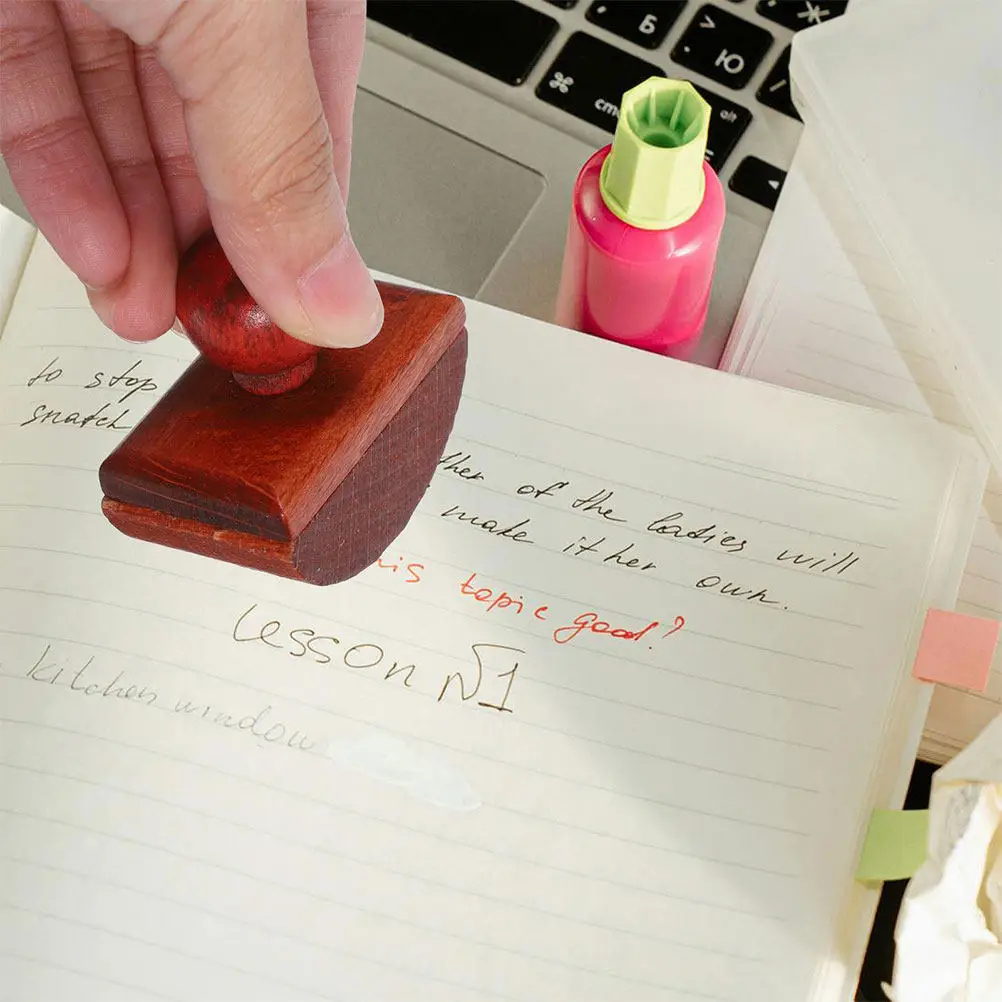 Б
Ю
Ж
>
⌘
cm
alt
to stop
snatch
ther of the ladies will
make it her own.
his topic good?
Lesson №1
kitchen window